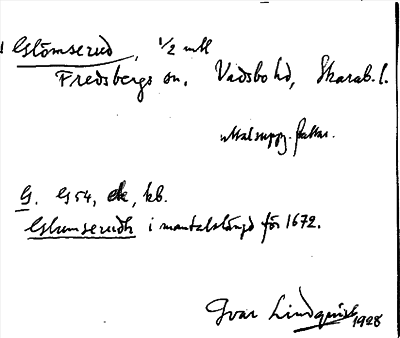 Glömserud, 1/2 mtl
Fredsbergs sn, Vadsbo hd, Skarab. l.
uttalsuppg. fattas.
G. G 54, ek, kb.
Glumserudh i mantalslängd för 1672.
Ivar Lindquist 1928